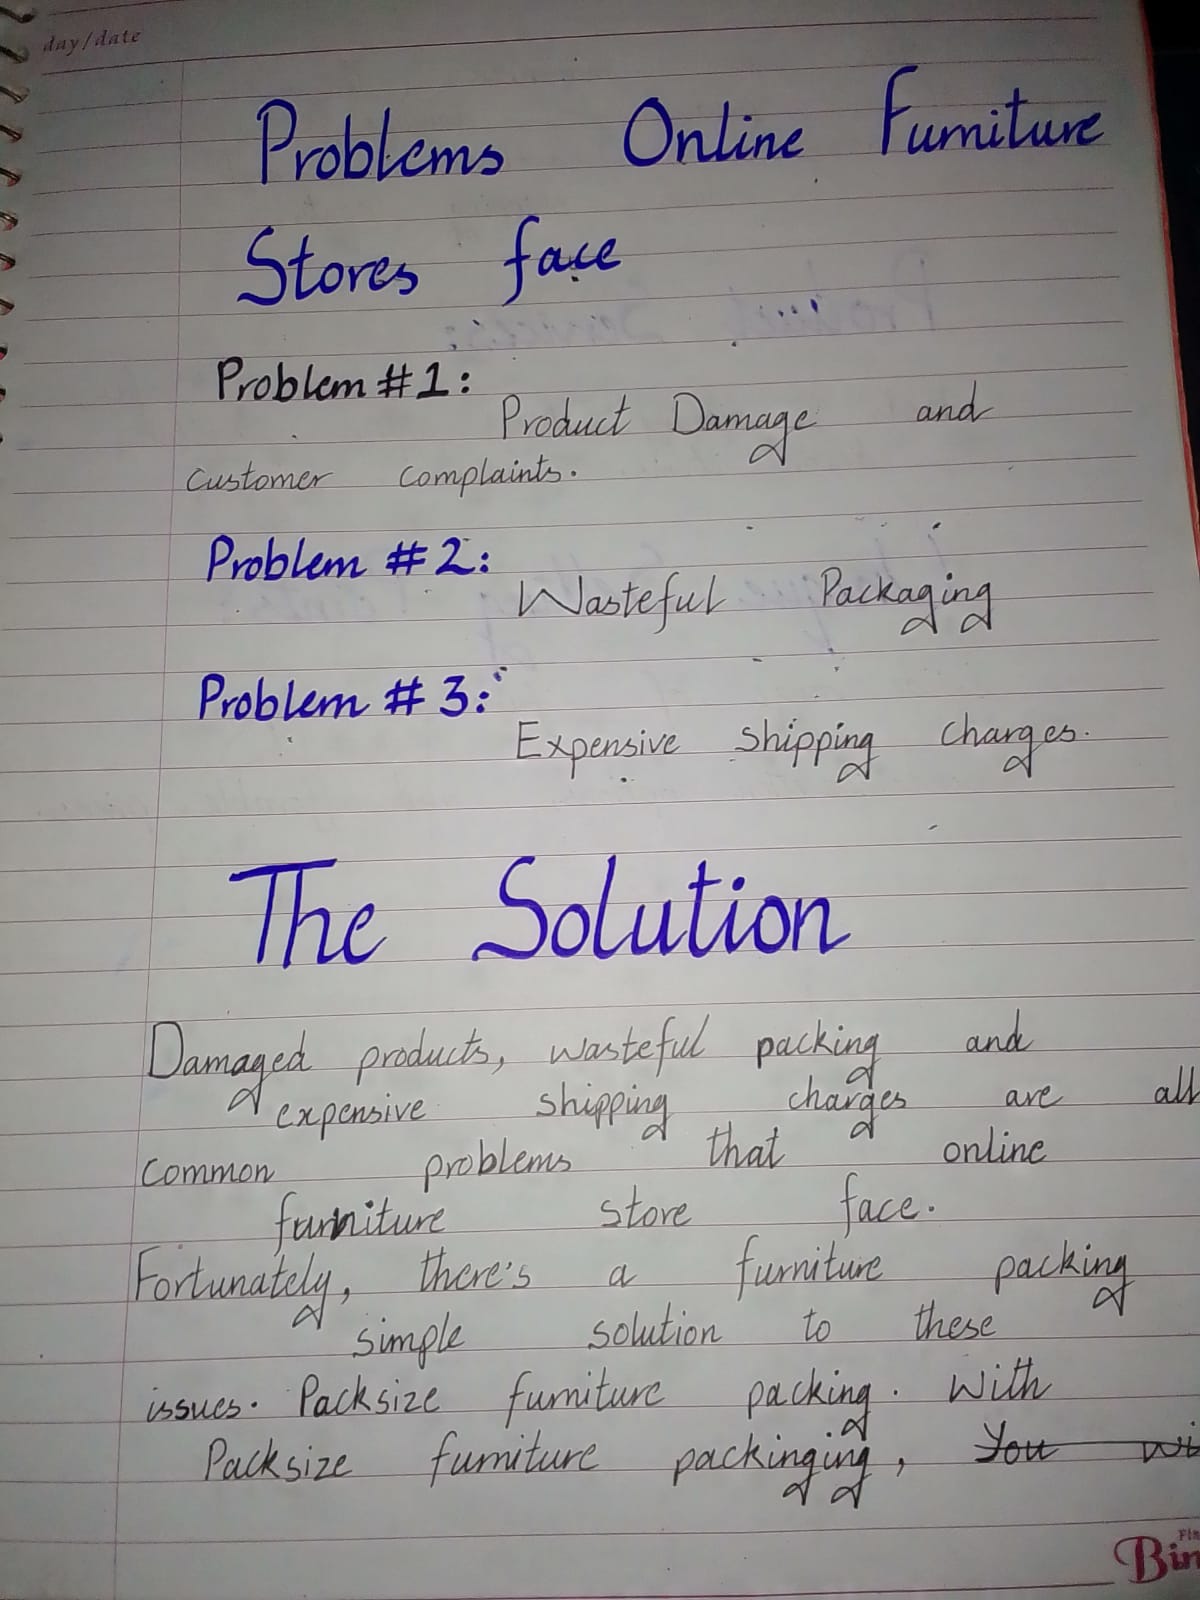 day/date
Problems Online Furniture
Stores face
Problem #1:
Product Damage and
customer complaints.
Problem #2:
Wasteful Packaging
Problem #3:
Expensive shipping charges.
The Solution
Damaged products, wasteful packing and
expensive shipping charges are all
common problems that online
furniture store face.
Fortunately, there's a furniture packing
simple solution to these
issues. Packsize furniture packing. With
Packsize furniture packinging, You wi
Bin